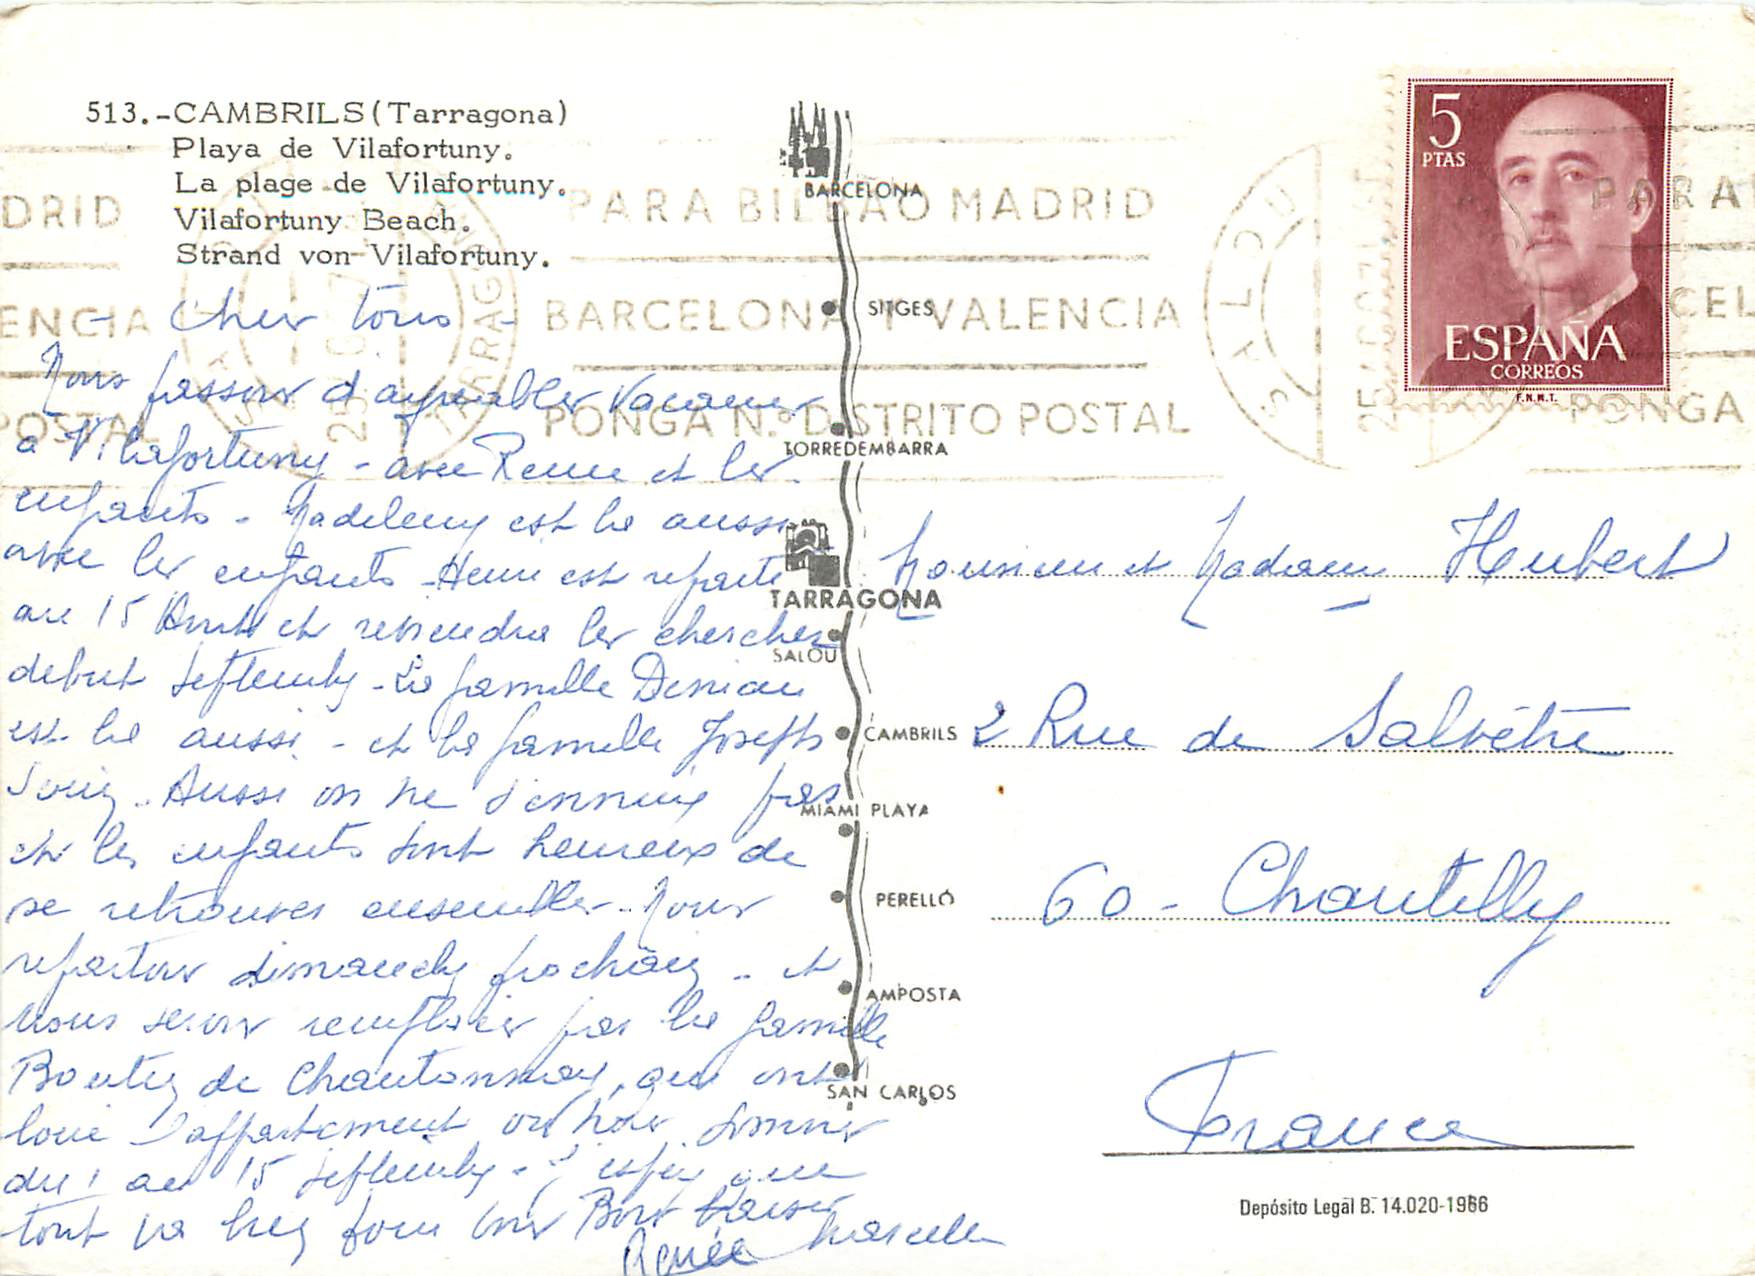 513.-CAMBRILS (Tarragona)
Playa de Vilafortuny.
La plage de Vilafortuny.
Vilafortuny Beach.
Strand von Vilafortuny.
- Cher tous -
Nous passons d'agreables vacances
a Vilafortuny - avec Renee et les
enfants - Madeleine est la aussi
avec les enfants - Henri est reparti
au 15 Aout et reviendra les chercher
debut septembre - La famille
est la aussi - et la famille Joseph
Aussi on ne s'ennuie pas
et les enfants sont heureux de
se retrouver ensembles - Nous
repartons dimanche prochain - et
nous serons remplacer par la famille
de Chantonnay, qui ont
loué l'appartement ou nous sommes
du 1 au 15 septembre - J'espere que
tout va bien pour vous Bons Baisers
Renée Marcelle
BARCELONA
SITGES
TORREDEMBARRA
TARRAGONA
SALOU
CAMBRILS
MIAMI PLAYA
PERELLÓ
AMPOSTA
SAN CARLOS
5
PTAS
ESPAÑA
CORREOS
F.N.M.T.
PARA BILBAO MADRID
BARCELONA Y VALENCIA
PONGA N.º DISTRITO POSTAL
SALOU
TARRAGONA
DRID
ENCIA
POSTAL
PARA
BARCEL
PONGA
Monsieur et Madame Hubert
2 Rue de Salvétrie
60 - Chantilly
France
Depósito Legal B. 14.020-1966